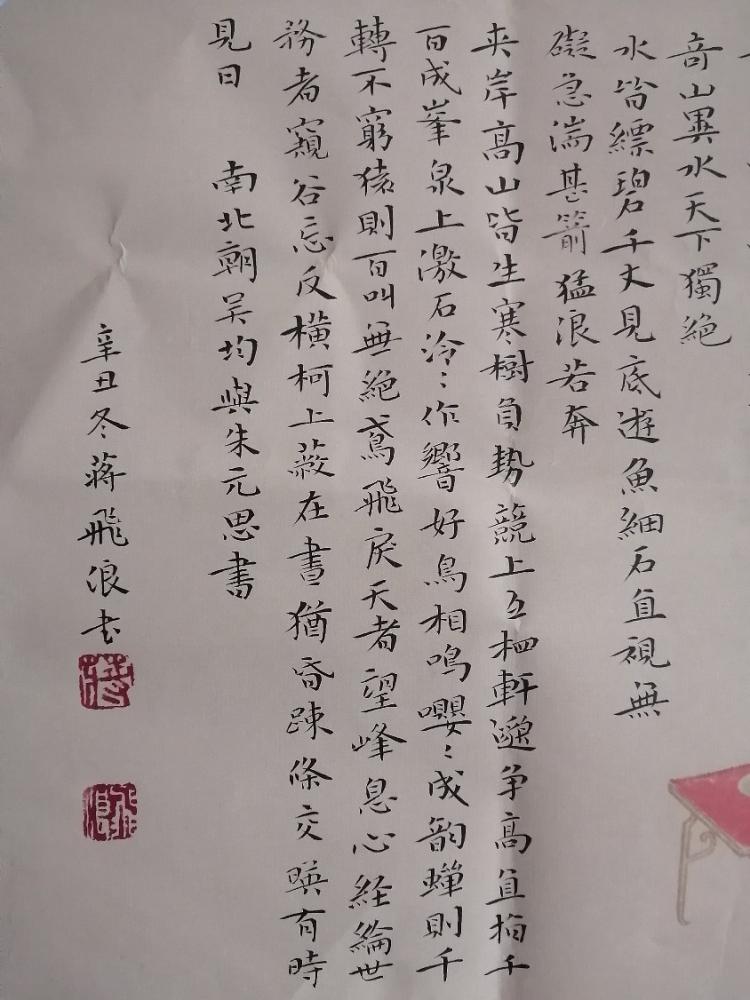 奇山異水天下獨絕
水皆縹碧千丈見底遊魚細石直視無
礙急湍甚箭猛浪若奔
夹岸高山皆生寒樹負勢競上互相軒邈争高直指千
百成峯泉上激石泠〻作響好鳥相鳴嚶〻成韵蟬則千
轉不窮猿則百叫無絕鳶飛戾天者望峰息心経綸世
務者窺谷忘反横柯上蔽在晝猶昏疎條交暎有時
見日
南北朝吴均與朱元思書
辛丑冬蔣飛浪书
蔣
飛浪